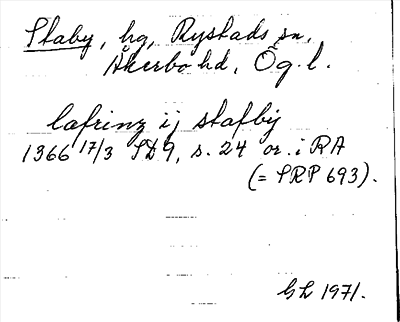 Staby, hg, Rystads sn,
Åkerbo hd, Ög. l.
lafrinz ij stafby
1366 17/3 SD 9, s. 24 or. i RA
(= SRP 693).
GL 1971.